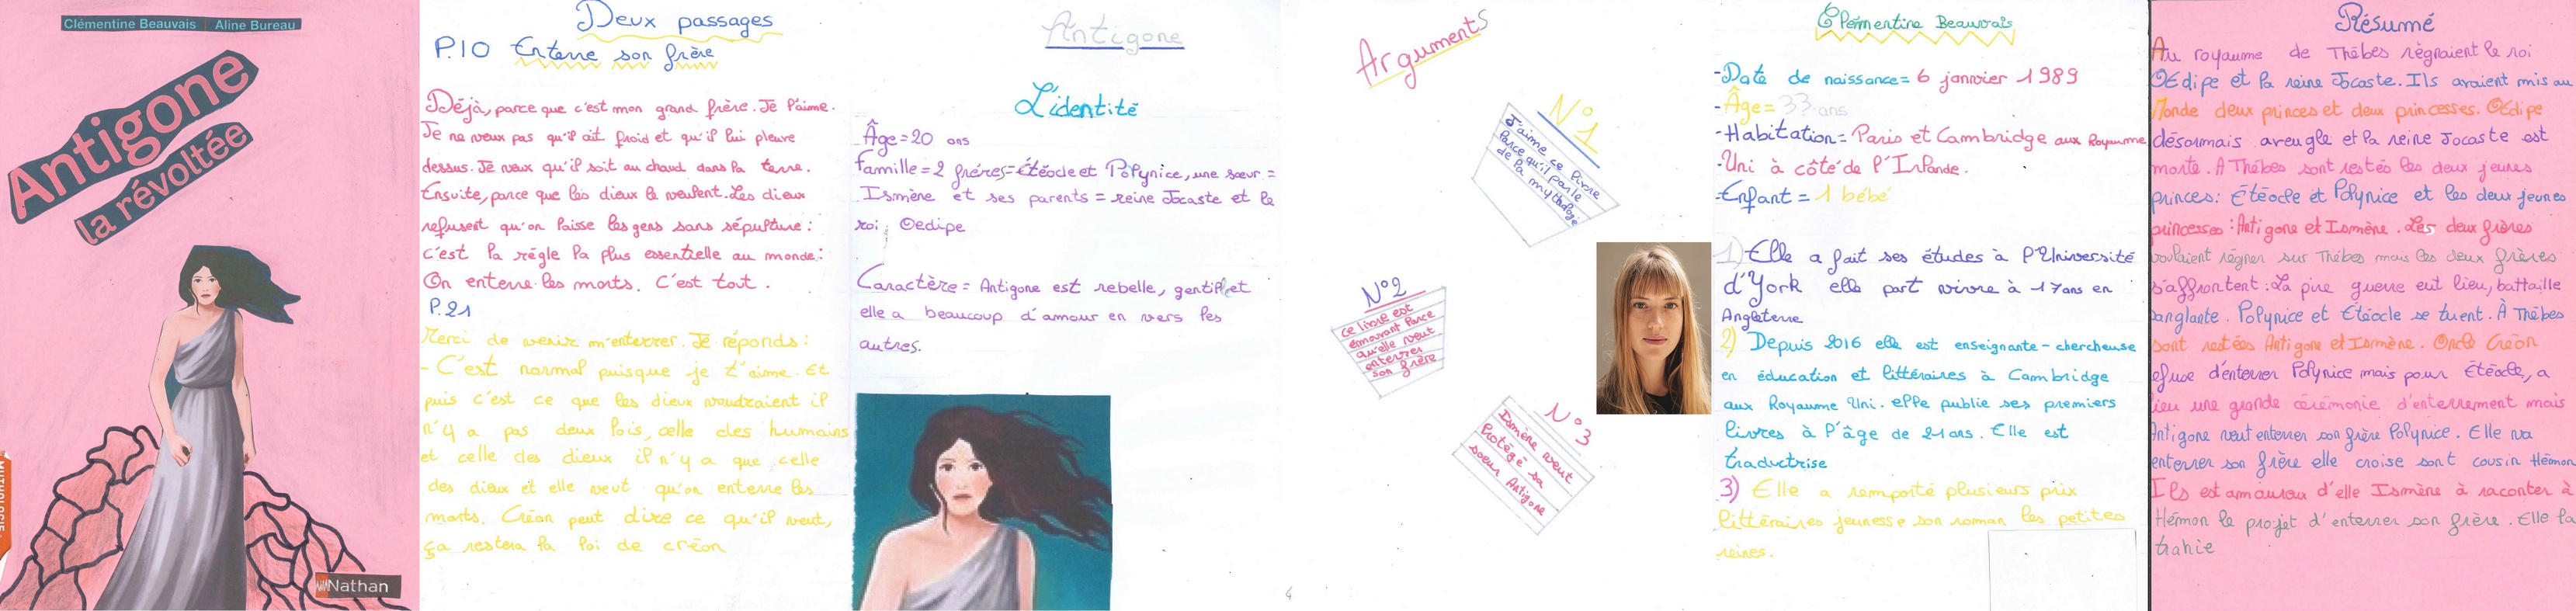 Clémentine Beauvais | Aline Bureau
Antigone
la révoltée
MYTHOLOGIE
Nathan
Deux passages
P.10 Enterre son frère
Déjà, parce que c'est mon grand frère. Je l'aime.
Je ne veux pas qu'il ait froid et qu'il lui pleuve
dessus. Je veux qu'il soit au chaud dans la terre.
Ensuite, parce que les dieux le veulent. Les dieux
refusent qu'on laisse les gens sans sépulture :
c'est la règle la plus essentielle au monde :
On enterre les morts. C'est tout.
P.21
Merci de venir m'enterrer. Je réponds :
- C'est normal puisque je t'aime. Et
puis c'est ce que les dieux voudraient il
n'y a pas deux lois, celle des humains
et celle des dieux il n'y a que celle
des dieux et elle veut qu'on enterre les
morts. Créon peut dire ce qu'il veut,
ça restera la loi de créon
Antigone
L'identité
Âge = 20 ans
Famille = 2 frères = Étéocle et Polynice, une sœur =
Ismène et ses parents = reine Jocaste et le
roi Oedipe
Caractère = Antigone est rebelle, gentille et
elle a beaucoup d'amour en vers les
autres.
Arguments
N°1
J'aime ce livre
Parce qu'il parle
de la mythologie
N°2
Ce livre est
émouvant Parce
qu'elle veut
enterrer
son frère
N°3
Ismène veut
Protégé sa
soeur Antigone
4
Clémentine Beauvais
-Date de naissance = 6 janvier 1989
-Âge = 33 ans
-Habitation = Paris et Cambridge aux Royaume
-Uni à côté de l'Irlande.
-Enfant = 1 bébé
1) Elle a fait ses études à l'Université
d'York elle part vivre à 17 ans en
Angleterre
2) Depuis 2016 elle est enseignante-chercheuse
en éducation et littéraires à Cambridge
aux Royaume Uni. elle publie ses premiers
livres à l'âge de 21 ans. Elle est
traductrise
3) Elle a remporté plusieurs prix
littéraires jeunesse son roman les petites
reines.
Résumé
Au royaume de Thèbes règnaient le roi
OEdipe et la reine Jocaste. Ils avaient mis au
Monde deux princes et deux princesses. OEdipe
désormais aveugle et la reine Jocaste est
morte. A Thèbes sont restés les deux jeunes
princes : Étéocle et Polynice et les deux jeunes
princesses : Antigone et Ismène. Les deux frères
voulaient régner sur Thèbes mais les deux frères
s'affrontent : La pire guerre eut lieu, battaille
sanglante. Polynice et Étéocle se tuent. À Thèbes
sont restées Antigone et Ismène. Oncle Créon
efuse d'enterrer Polynice mais pour Étéocle, a
lieu une grande cérémonie d'enterrement mais
Antigone veut enterrer son frère Polynice. Elle va
enterrer son frère elle croise sont cousin Hémon
Ils est amoureux d'elle Ismène à raconter à
Hémon le projet d'enterrer son frère. Elle la
trahie